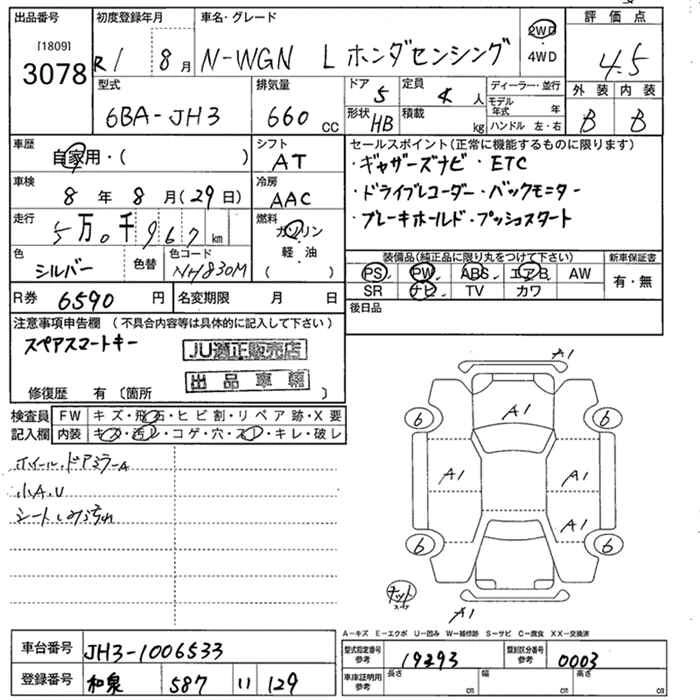 出品番号 初度登録年月 車名・グレード 評価点
[1809]
3078
R1 8月 N-WGN L ホンダセンシング 2WD 4WD 4.5
型式 6BA-JH3 排気量 660 cc
ドア 5 定員 4人 ディーラー・並行
形状 HB 積載 kg モデル年式 年
ハンドル 左・右
外装 内装
B B
車歴 自家用・( ) シフト AT
車検 8年8月(29日) 冷房 AAC
走行 5万0千967km 燃料 ガソリン 軽油 ( )
色 シルバー 色替 色コード NH830M
R券 6590円 名変期限 月 日
セールスポイント(正常に機能するものに限ります)
・ギャザーズナビ・ETC
・ドライブレコーダー・バックモニター
・ブレーキホールド・プッシュスタート
装備品(純正品に限り丸をつけて下さい) 新車保証書
PS PW ABS エアB AW 有・無
SR ナビ TV カワ
後日品
注意事項申告欄(不具合内容等は具体的に記入して下さい)
スペアスマートキー
JU適正販売店
出品車輌
修復歴 有(箇所 )
検査員記入欄 FW キズ・飛石・ヒビ割・リペア跡・X要
内装 キズ・汚レ・コゲ・穴・スレ・キレ・破レ
ホイール、ドアミラーA
小A.U
A1
6 A1 6
A1 A1
A1
6 6
A1
A-キズ E-エクボ U-凹み W-補修跡 S-サビ C-腐食 XX-交換済
車台番号 JH3-1006533
登録番号 和泉 587 い 129
型式指定番号 参考 19293 類別区分番号 参考 0003
車庫証明用 参考 長さ cm 幅 cm 高さ cm